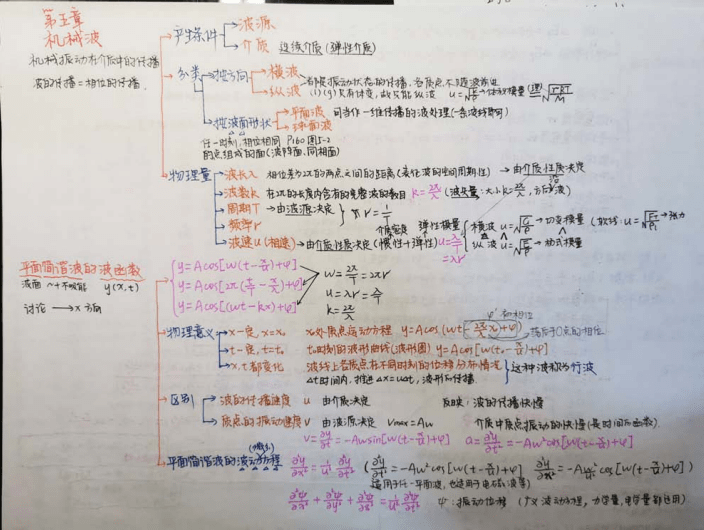 第五章
机械波
机械振动在介质中的传播
波的传播=相位的传播.
产生条件
波源
介质 连续介质(弹性介质)
分类
按方向
横波
纵波
都是振动状态的传播,各质点不随波前进
按波面形状
平面波
球面波
可当作一维传播的波处理(一条波线即可)
任一时刻,相位相同 P160 图5-2
的点组成的面(波阵面、同相面)
物理量
波长λ 相位差为2π的两点之间的距离(表征波的空间周期性) → 由介质性质决定
波数k 在2π的长度内含有的完整波的数目 k=2π/λ
周期T → 由波源决定
频率ν
波速u(相速) → 由介质性质决定(惯性+弹性) u=λ/T=λν
介质密度 弹性模量
横波 u=√G/ρ → 切变模量 (软绳: u=√F/ρ → 张力
纵波 u=√E/ρ → 杨式模量
平面简谐波的波函数
y(x,t)
讨论 → x方向
y=Acos[w(t-x/u)+φ]
y=Acos[2π(t/T-x/λ)+φ]
y=Acos[(wt-kx)+φ]
w=2π/T=2πν
u=λν=λ/T
k=2π/λ
φ' 初相位
物理意义
x一定, x=x₀ x₀处质点振动方程 y=Acos(wt-2π/λ x₀+φ) 落后于O点的相位
t一定, t=t₀ t₀时刻的波形曲线(波形图) y=Acos[w(t₀-x/u)+φ]
x,t都变化 波线上各质点在不同时刻的位移分布情况
Δt时间内,推进Δx=uΔt, 波形向传播.
这种波称为行波
区别
波的传播速度 u 由介质决定 反映:波的传播快慢
质点的振动速度 v 由波源决定 vmax=Aw 介质中质点振动的快慢(是时间的函数)
v=∂y/∂t=-Awsin[w(t-x/u)+φ] a=∂²y/∂t²=-Aw²cos[w(t-x/u)+φ]
平面简谐波的波动方程
∂²y/∂x²=1/u² ∂²y/∂t² (∂²y/∂t²=-Aw²cos[w(t-x/u)+φ] ∂²y/∂x²=-A w²/u² cos[w(t-x/u)+φ])
适用于任一平面波,也适用于电磁波等)
∂²ψ/∂x²+∂²ψ/∂y²+∂²ψ/∂z²=1/u² ∂²ψ/∂t² ψ:振动位移 (广义波动方程,力学量,电学量都适用)